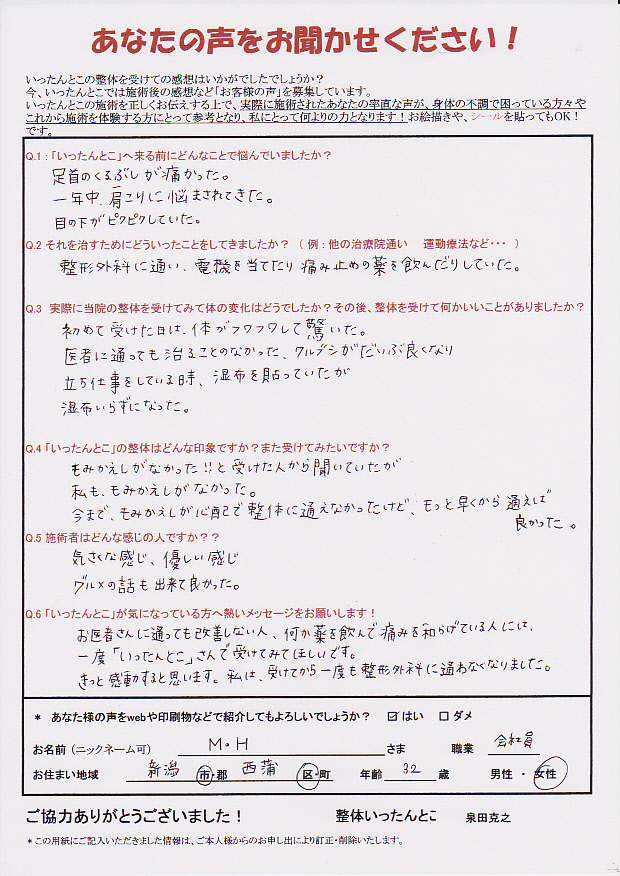 あなたの声をお聞かせください！
いったんとこの整体を受けての感想はいかがでしたでしょうか？
今、いったんとこでは施術後の感想など「お客様の声」を募集しています。
いったんとこの施術を正しくお伝えする上で、実際に施術されたあなたの率直な声が、身体の不調で困っている方々や
これから施術を体験する方にとって参考となり、私にとって何よりの力となります！お絵描きや、シールを貼ってもOK！
です。
Q.1：「いったんとこ」へ来る前にどんなことで悩んでいましたか？
足首のくるぶしが痛かった。
一年中、肩こりに悩まされてきた。
目の下がピクピクしていた。
Q.2 それを治すためにどういったことをしてきましたか？（ 例：他の治療院通い　運動療法など・・・ ）
整形外科に通い、電機を当てたり 痛み止めの薬を飲んだりしていた。
Q.3　実際に当院の整体を受けてみて体の変化はどうでしたか？その後、整体を受けて何かいいことがありましたか？
初めて受けた日は、体がフワフワして驚いた。
医者に通っても治ることのなかった、クルブシがだいぶ良くなり
立ち仕事をしている時、湿布を貼っていたが
湿布いらずになった。
Q.4 「いったんとこ」の整体はどんな印象ですか？また受けてみたいですか？
もみかえしがなかった!!と受けた人から聞いていたが
私も、もみかえしがなかった。
今まで、もみかえしが心配で整体に通えなかったけど、もっと早くから通えば
良かった。
Q.5 施術者はどんな感じの人ですか？？
気さくな感じ、優しい感じ
グルメの話も出来て良かった。
Q.6 「いったんとこ」が気になっている方へ熱いメッセージをお願いします！
お医者さんに通っても改善しない人、何か薬を飲んで痛みを和らげている人には、
一度「いったんとこ」さんで受けてみてほしいです。
きっと感動すると思います。私は、受けてから一度も整形外科に通わなくなりました。
＊ あなた様の声をwebや印刷物などで紹介してもよろしいでしょうか？ ☑はい ☐ダメ
お名前（ニックネーム可） M・H さま 職業 会社員
お住まい地域 新潟 市・郡 西蒲 区・町 年齢 32 歳 男性 ・ 女性
ご協力ありがとうございました！ 整体いったんとこ 泉田克之
＊この用紙にご記入いただきました情報は、ご本人様からのお申し出により訂正・削除いたします。